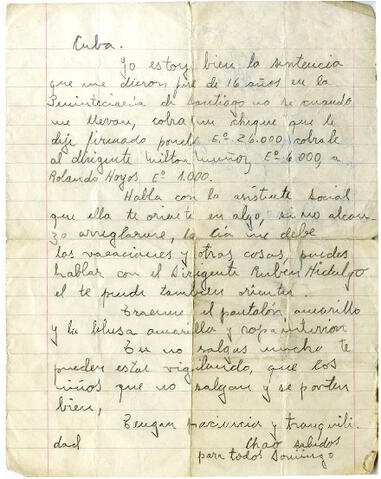 Cuba.
Yo estoy bien la sentencia
que me dieron fue de 16 años en la
Peninteciaria de Santiago no se cuando
me llevan, cobra un cheque que te
deje firmado ponele Eº 26.000 cobrale
al dirigente Milton Muñoz Eº 6.000, a
Rolando Hoyos Eº 1.000.
Habla con la asistente social
que ella te oriente en algo, si no alcan-
zo arreglarme, la Cia me debe
las vacaciones y otras cosas, puedes
hablar con el Dirigente Ruben Hidalgo
el te puede tambien orientar.
Traeme el pantalón amarillo
y la blusa amarilla y ropa interior
Tu no salgas mucho te
pueden estar vigilando, que los
niños que no salgan y se porten
bien,
Tengan paciencia y tranquili
dad Chao saludos
para todos Domingo